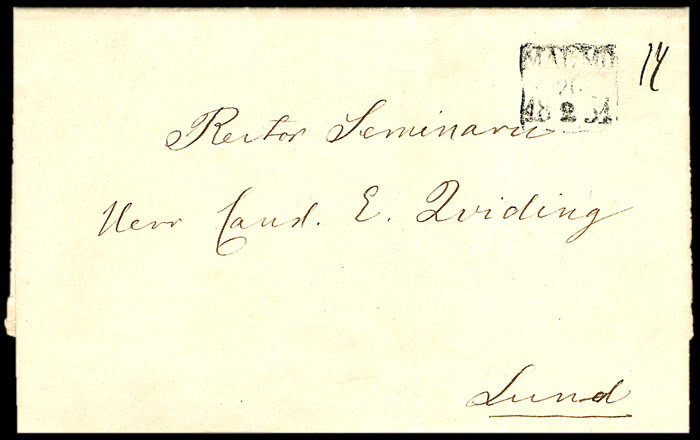 MALMÖ
26
18 2 51.
14
Rector Seminarii
Herr Cand. E. Qviding
Lund